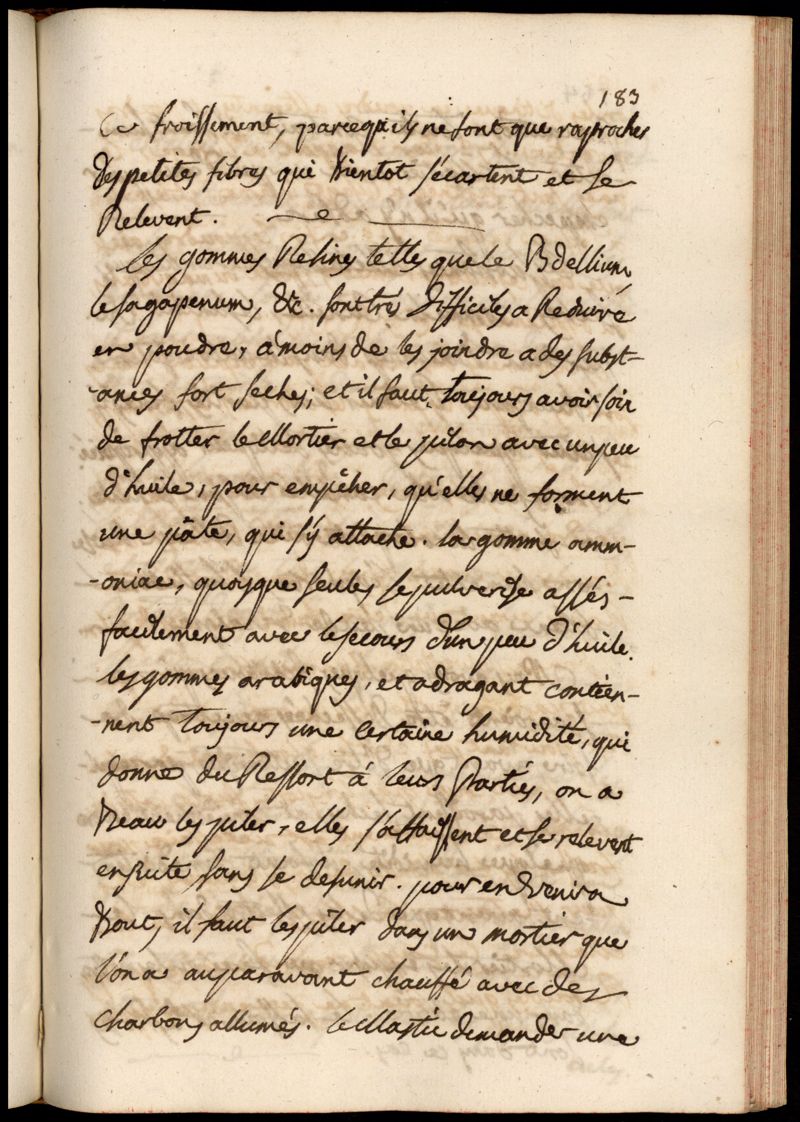 183
Ce froissement, parcequ'ils ne font que raprocher
des petites fibres qui bientot s'écartent et se
Relevent.
les gommes Resines telles que le Bdellium,
le sagapenum, &tc. sont trés difficiles a Reduire
en poudre, á moins de les joindre a des subst-
-ances fort seches; et il faut toujours avoir soin
de frotter le Mortier et le pilon avec un peu
d'huile, pour empêcher, qu'elles ne forment
une pâte, qui s'y attache. la gomme amm-
-oniac, quoique seule, se pulverise assés-
facilement avec le secours d'un peu d'huile.
les gommes arabiques, et adragant contien-
-nent toujours une certaine humidité, qui
donne du Ressort á leurs Parties, on a
beau les piler, elles s'affaissent et se relevent
ensuite sans se desunir. pour en venir a
bout, il faut les piler dans un mortier que
l'on a auparavant chauffé avec des
charbons allumés. le Mastic demande une